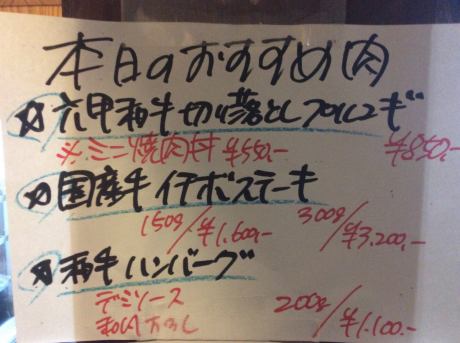 本日のおすすめ肉
☆六甲和牛切り落としプルコギ
※ミニ焼肉丼 ¥550.- ¥850.-
☆国産牛イチボステーキ
150g/¥1.600.- 300g/¥3.200.-
☆和牛ハンバーグ
デミソース 200g/¥1.100.-
和風おろし